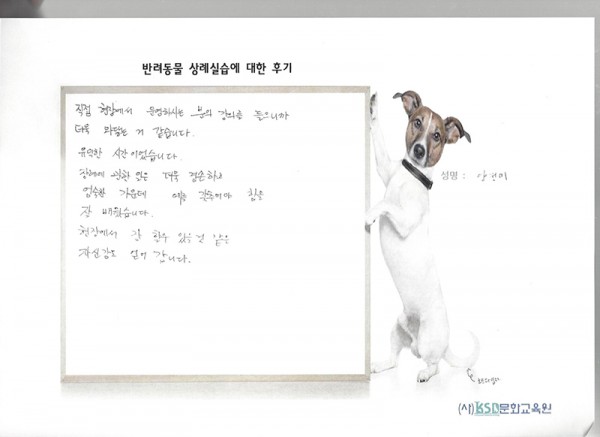 반려동물 상례실습에 대한 후기
직접 현장에서 운영하시는 분의 강의를 들으니까
더욱 와닿는 거 같습니다.
유익한 시간이었습니다.
장례에 관한 일은 더욱 겸손하고
엄숙한 가운데 예를 갖추어야 함을
잘 배웠습니다.
현장에서 잘 할수 있을 것 같은
자신감도 얻어 갑니다.
성명 :
(사)KSD문화교육원